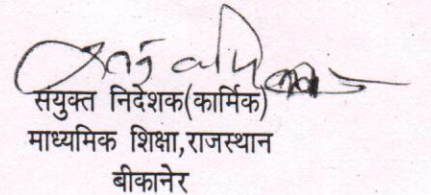 सयुक्त निदेशक(कार्मिक)
माध्यमिक शिक्षा,राजस्थान
बीकानेर